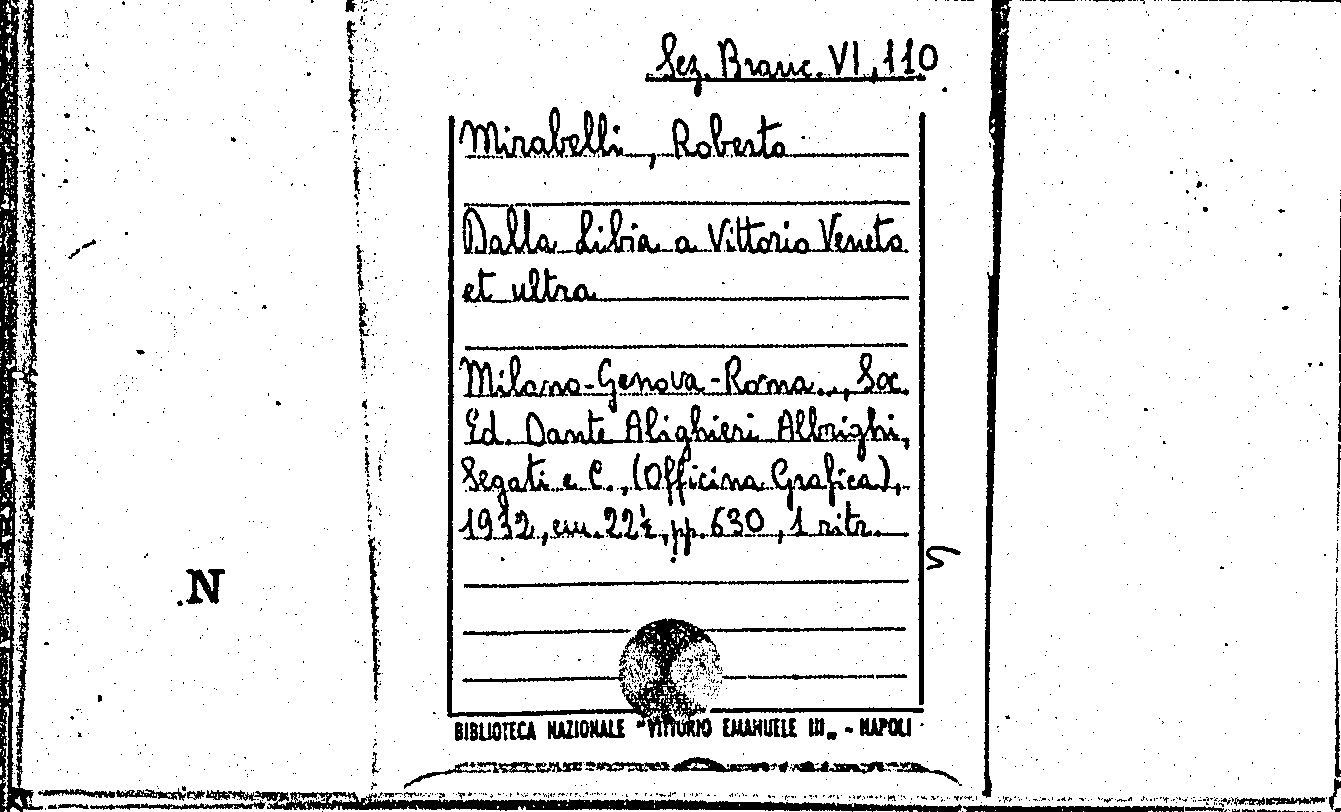 Sez. Branc. VI, 110
Mirabelli, Roberto
Dalla Libia a Vittorio Veneto
et ultra
Milano-Genova-Roma.., Soc.
Ed. Dante Alighieri Albrighi,
Segati e C., (Officina Grafica),
1932, cm. 22½, pp. 630, 1 ritr.
N
BIBLIOTECA NAZIONALE "VITTORIO EMANUELE III„ - NAPOLI